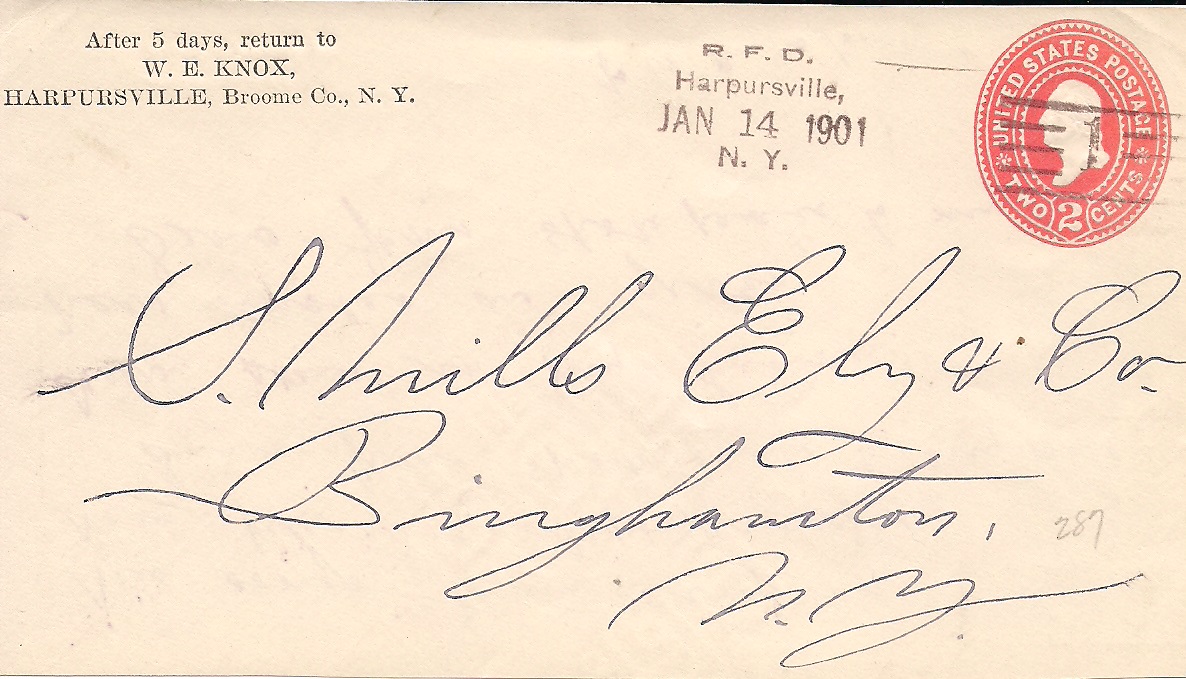 After 5 days, return to
W. E. KNOX,
HARPURSVILLE, Broome Co., N. Y.
R. F. D.
Harpursville,
JAN 14 1901
N. Y.
UNITED STATES POSTAGE
1
TWO 2 CENTS
S. Mills Ely & Co.
Binghamton,
N. Y.
287